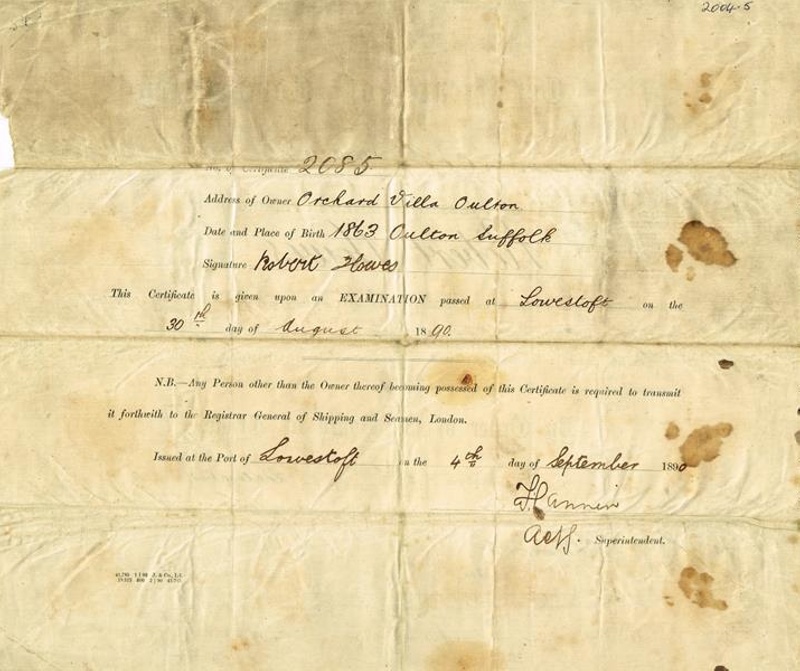 2004.5
No. of Certificate 2085
Address of Owner Orchard Villa Oulton
Date and Place of Birth 1863 Oulton Suffolk
Signature Robert Howes
This Certificate is given upon an EXAMINATION passed at Lowestoft on the
30th day of August 1890.
N.B.—Any Person other than the Owner thereof becoming possessed of this Certificate is required to transmit
it forthwith to the Registrar General of Shipping and Seamen, London.
Issued at the Port of Lowestoft on the 4th day of September 1890
Actg. Superintendent.